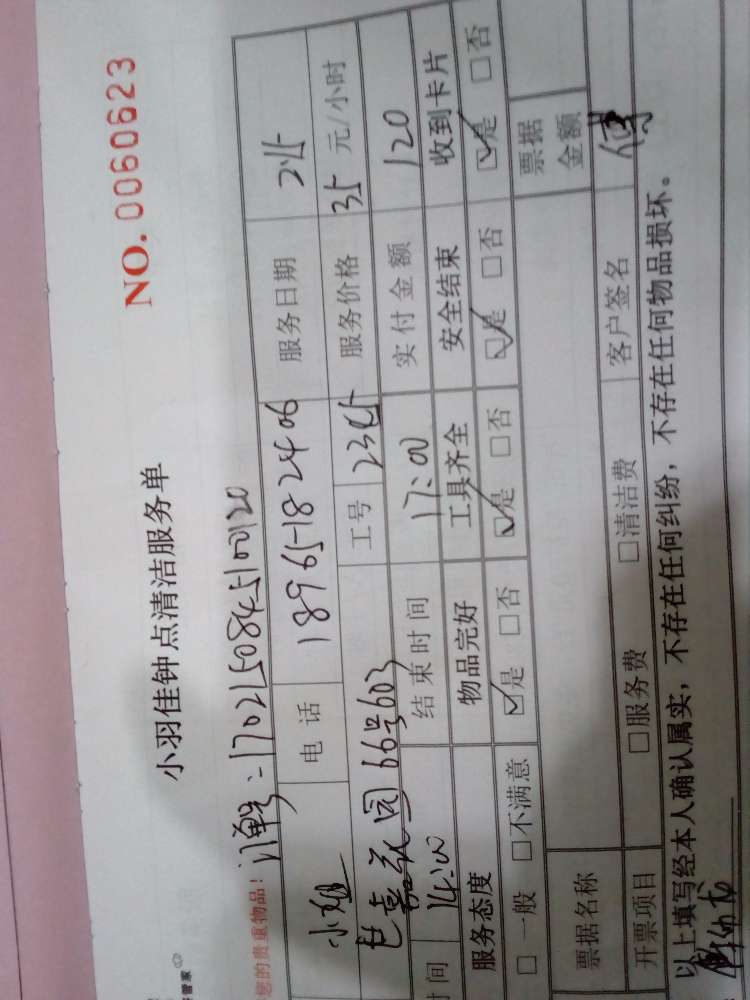 NO. 0060623
小羽佳钟点清洁服务单
管家
您的贵重物品！订单号：170215084510120
电 话 18965182406 服务日期 2.15
66号603 工号 服务价格 35 元/小时
时间 14:00 结束时间 17:00 实付金额 120
服务态度 物品完好 工具齐全 安全结束 收到卡片
□ 一般 □不满意 ☑是 □否 ☑是 □否 ☑是 □否 ☑是 □否
票据名称 票据金额
开票项目 □服务费 □清洁费 客户签名 傅
以上填写经本人确认属实，不存在任何纠纷，不存在任何物品损坏。